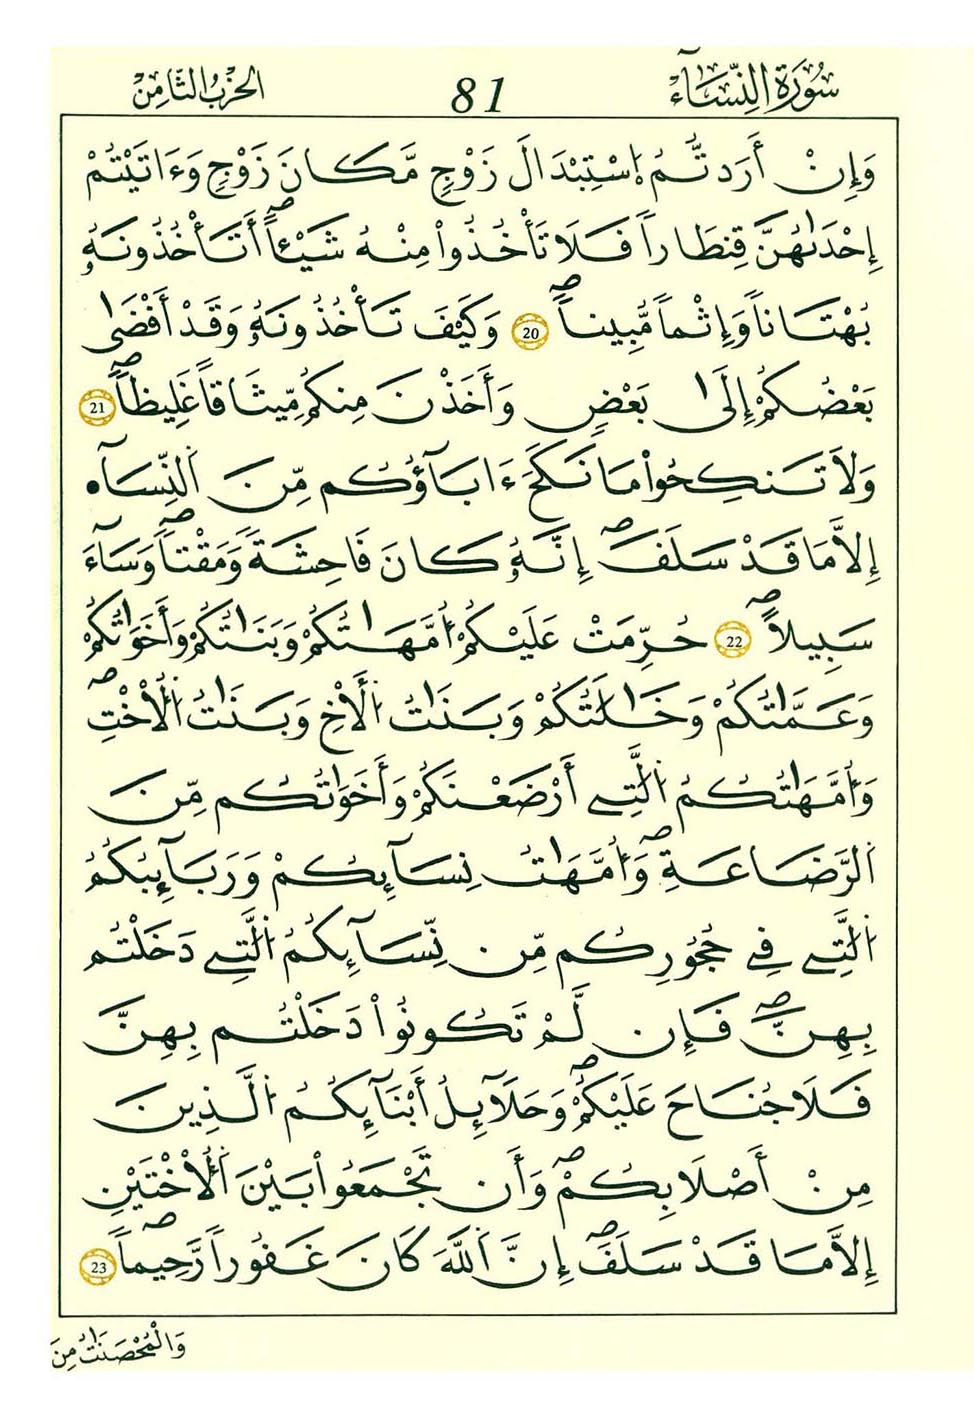 سُورَةُ النِّسَآءِ 81 الحِزْبُ الثَّامِنُ
وَإِنْ أَرَدتُّمُ اُ۪سْتِبْدَالَ زَوْجٍ مَّكَانَ زَوْجٍ وَءَاتَيْتُمْ
إِحْدَىٰهُنَّ قِنطَاراً فَلَا تَأْخُذُواْ مِنْهُ شَيْـٔاًۖ أَتَأْخُذُونَهُۥ
بُهْتَاناً وَإِثْماً مُّبِيناًۖ 20 وَكَيْفَ تَأْخُذُونَهُۥ وَقَدْ أَفْضَىٰ
بَعْضُكُمُۥٓ إِلَىٰ بَعْضٍ وَأَخَذْنَ مِنكُم مِّيثَٰقاً غَلِيظاًۖ 21
وَلَا تَنكِحُواْ مَا نَكَحَ ءَابَآؤُكُم مِّنَ اَ۬لنِّسَآءِ
إِلَّا مَا قَدْ سَلَفَۖ إِنَّهُۥ كَانَ فَٰحِشَةً وَمَقْتاًۖ وَسَآءَ
سَبِيلاًۖ 22 حُرِّمَتْ عَلَيْكُمُۥٓ أُمَّهَٰتُكُمْ وَبَنَاتُكُمْ وَأَخَوَٰتُكُمْ
وَعَمَّٰتُكُمْ وَخَٰلَٰتُكُمْ وَبَنَاتُ اُ۬لْأَخِ وَبَنَاتُ اُ۬لْأُخْتِۖ
وَأُمَّهَٰتُكُمُ اُ۬لَّٰتِےٓ أَرْضَعْنَكُمْ وَأَخَوَٰتُكُم مِّنَ
اَ۬لرَّضَٰعَةِۖ وَأُمَّهَٰتُ نِسَآئِكُمْ وَرَبَٰٓئِبُكُمُ
اُ۬لَّٰتِے فِے حُجُورِكُم مِّن نِّسَآئِكُمُ اُ۬لَّٰتِے دَخَلْتُم
بِهِنَّۖ فَإِن لَّمْ تَكُونُواْ دَخَلْتُم بِهِنَّ
فَلَا جُنَاحَ عَلَيْكُمْۖ وَحَلَٰٓئِلُ أَبْنَآئِكُمُ اُ۬لَّذِينَ
مِنْ أَصْلَٰبِكُمْۖ وَأَن تَجْمَعُواْ بَيْنَ اَ۬لْأُخْتَيْنِ
إِلَّا مَا قَدْ سَلَفَۖ إِنَّ اَ۬للَّهَ كَانَ غَفُوراً رَّحِيماًۖ 23
وَالْمُحْصَنَٰتُ مِنَ